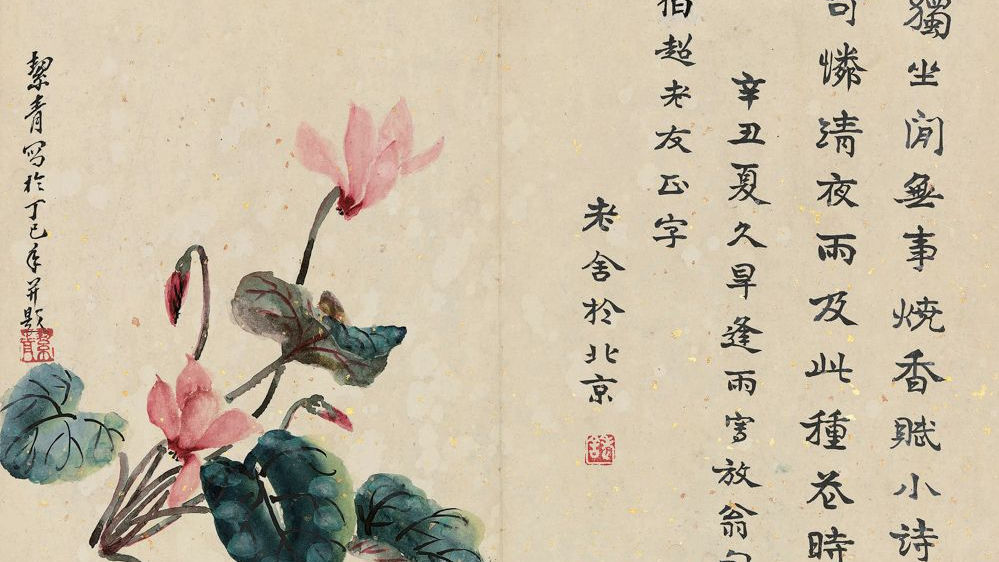 獨坐閒無事焼香賦小詩
可憐清夜雨及此種花時
辛丑夏久旱逢雨寫放翁句
伯超老友正字
老舍於北京
老舍
絜青写於丁巳年并题
絜青